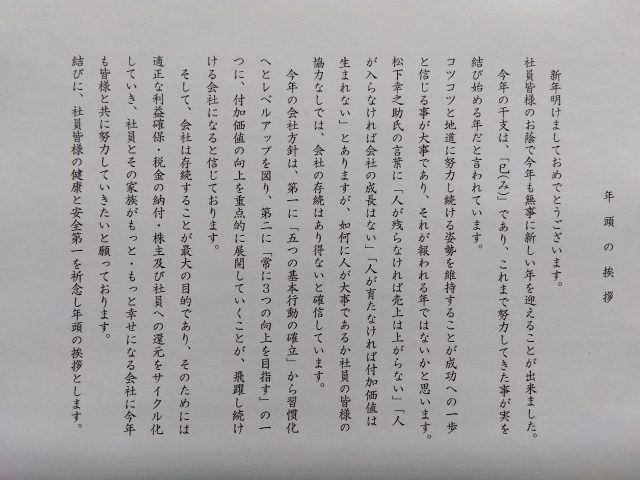 年頭の挨拶
新年明けましておめでとうございます。
社員皆様のお陰で今年も無事に新しい年を迎えることが出来ました。
今年の干支は、「巳(み)」であり、これまで努力してきた事が実を
結び始める年だと言われています。
コツコツと地道に努力し続ける姿勢を維持することが成功への一歩
と信じる事が大事であり、それが報われる年ではないかと思います。
松下幸之助氏の言葉に「人が残らなければ売上は上がらない」「人
が入らなければ会社の成長はない」「人が育たなければ付加価値は
生まれない」とありますが、如何に人が大事であるか社員の皆様の
協力なしでは、会社の存続はあり得ないと確信しています。
今年の会社方針は、第一に「五つの基本行動の確立」から習慣化
へとレベルアップを図り、第二に「常に3つの向上を目指す」の一
つに、付加価値の向上を重点的に展開していくことが、飛躍し続け
ける会社になると信じております。
そして、会社は存続することが最大の目的であり、そのためには
適正な利益確保・税金の納付・株主及び社員への還元をサイクル化
していき、社員とその家族がもっと・もっと幸せになる会社に今年
も皆様と共に努力していきたいと願っております。
結びに、社員皆様の健康と安全第一を祈念し年頭の挨拶とします。